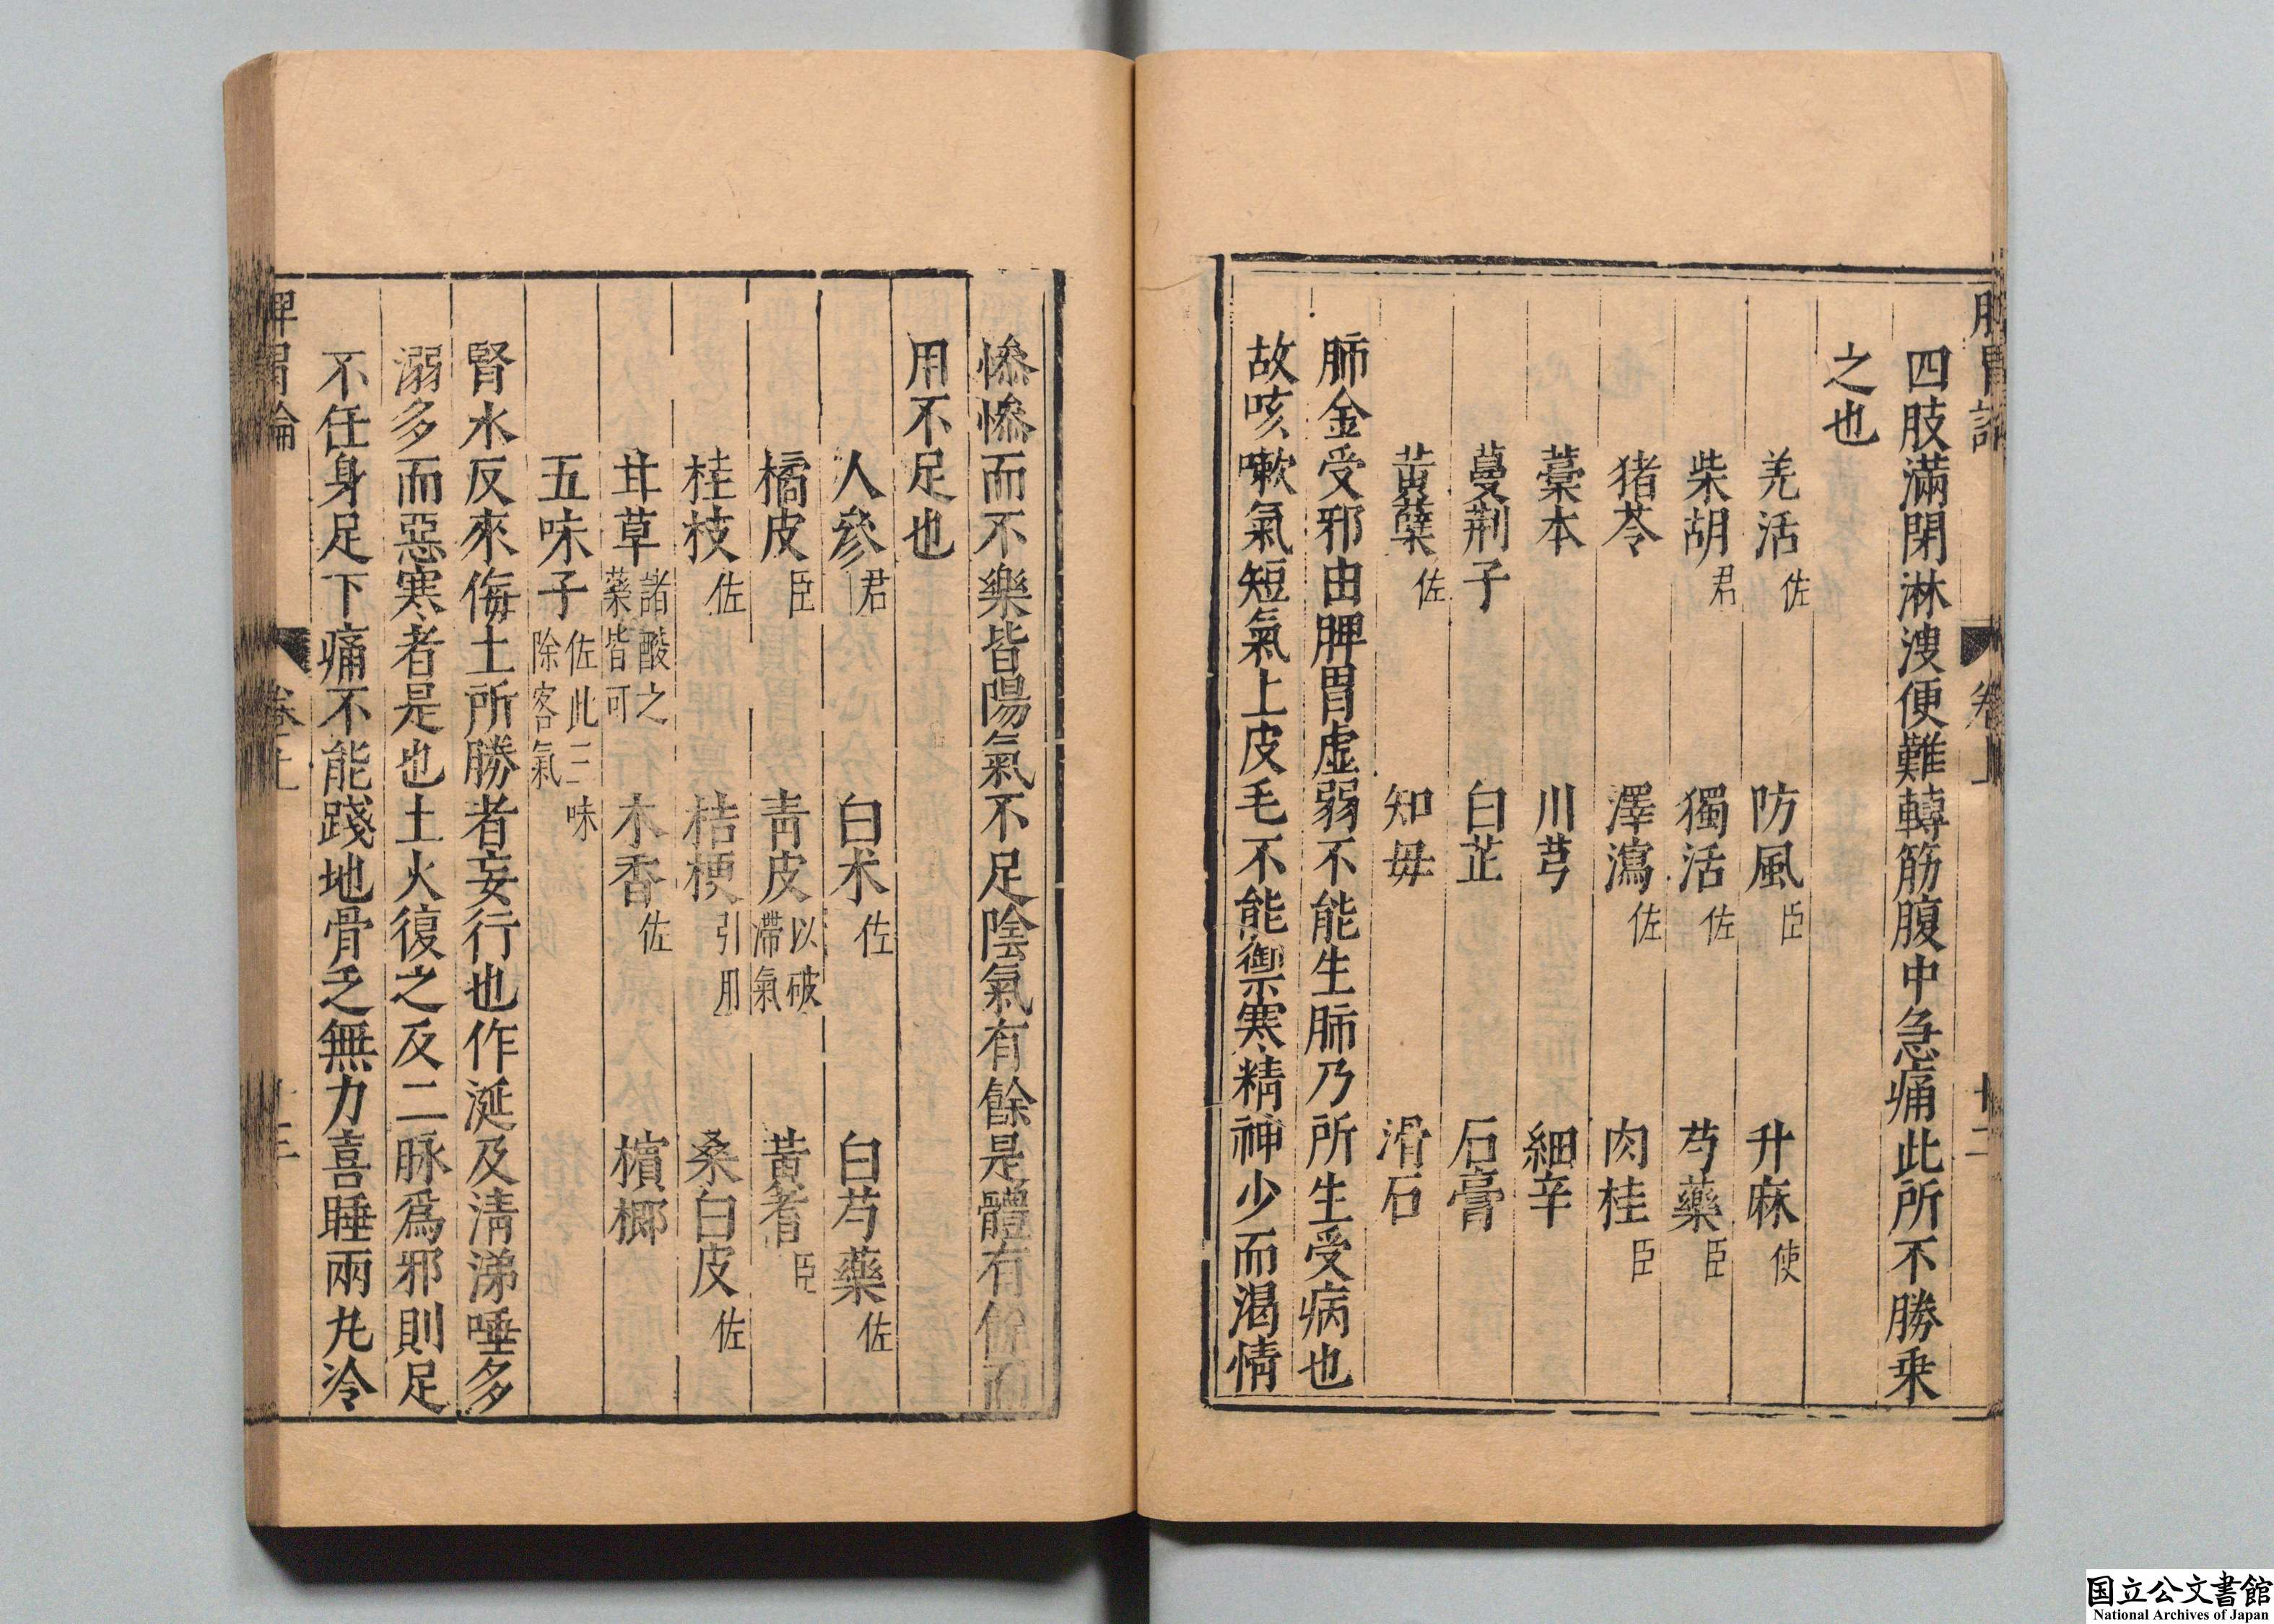 四肢滿閉淋溲便難轉筋腹中急痛此所不勝乗
之也
羌活佐 防風臣 升麻使
柴胡君 獨活佐 芍藥臣
猪苓 澤瀉佐 肉桂臣
藁本 川芎 細辛
蔓荆子 白芷 石膏
黄蘖佐 知毋 滑石
肺金受邪由脾胃虚弱不能生肺乃所生受病也
故咳嗽氣短氣上皮毛不能禦寒精神少而渴情
慘慘而不樂皆陽氣不足陰氣有餘是體有餘而
用不足也
人參君 白术佐 白芍藥佐
橘皮臣 青皮以破滯氣 黃耆臣
桂枝佐 桔梗引用 桑白皮佐
甘草諸酸之藥皆可 木香佐 檳榔
五味子佐此二味除客氣
腎水反來侮土所勝者妄行也作涎及淸涕唾多
溺多而惡寒者是也土火復之及二脉爲邪則足
不任身足下痛不能踐地骨乏無力喜睡兩𠃵冷
脾胃論
国立公文書館
National Archives of Japan